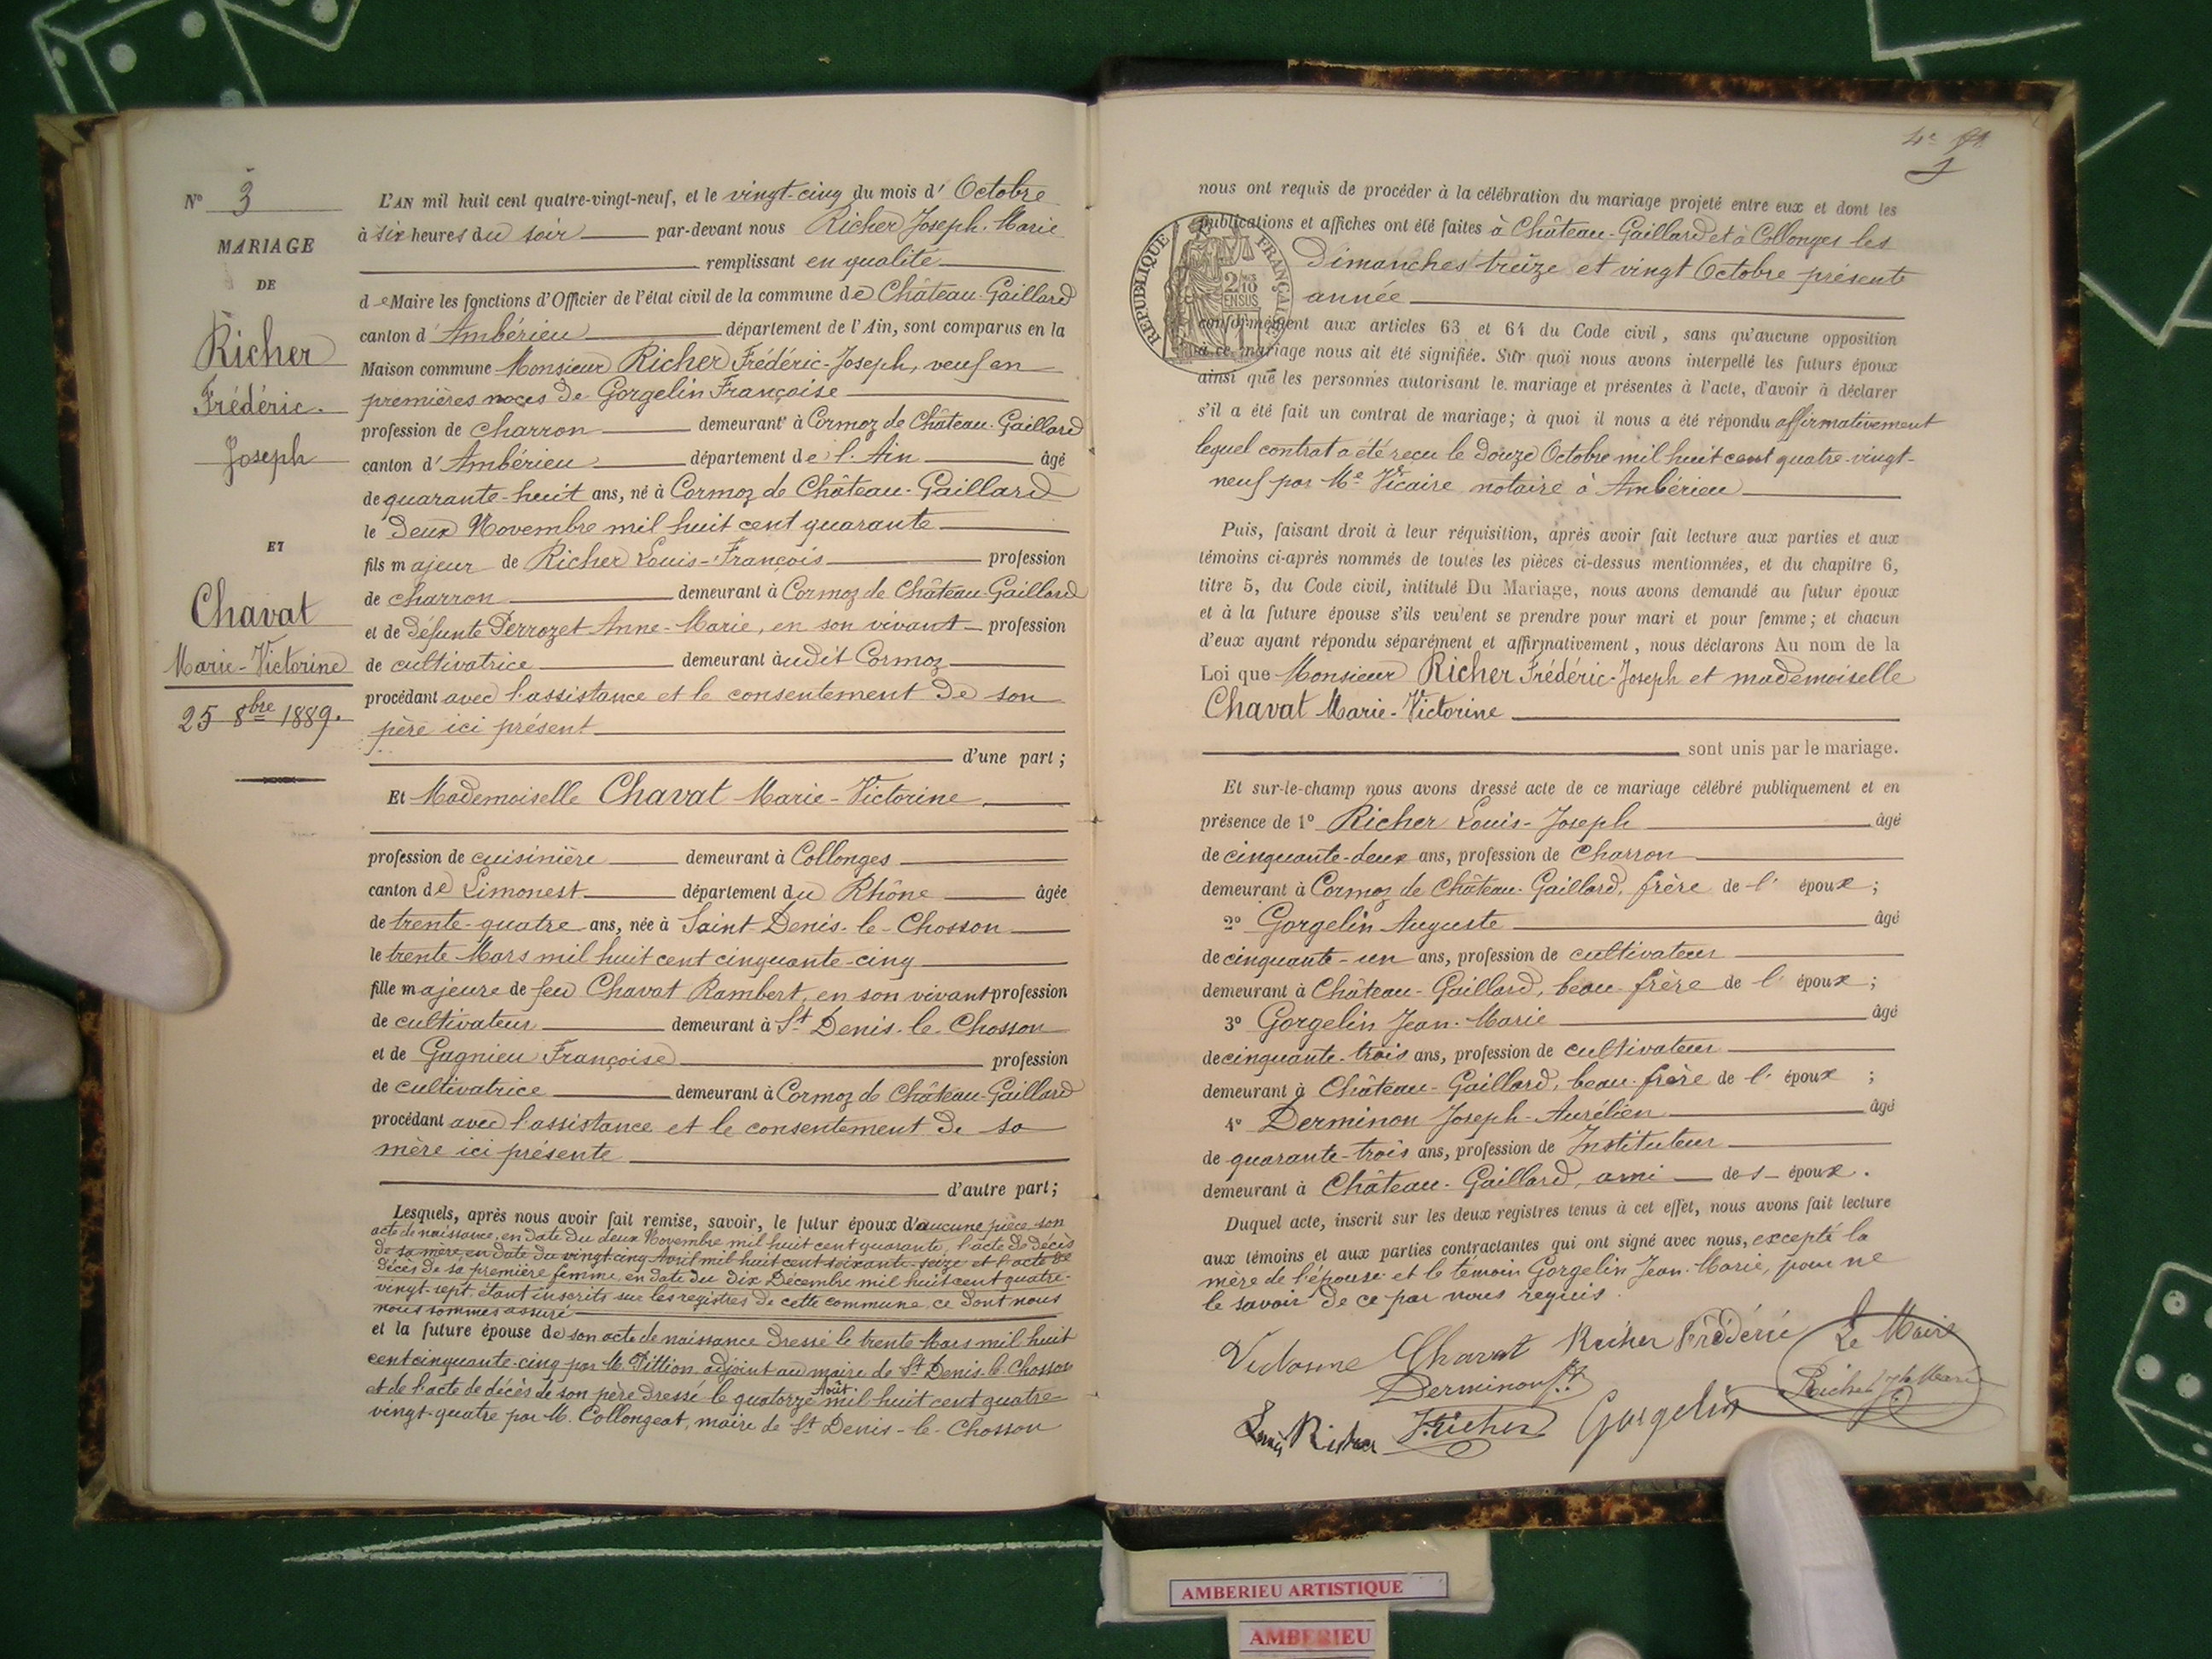 N° 3
MARIAGE
DE
Richer
Frédéric
Joseph
ET
Chavat
Marie-Victorine
25 8bre 1889.
L'AN mil huit cent quatre-vingt-neuf, et le vingt-cinq du mois d' Octobre
à six heures du soir par-devant nous Richer Joseph-Marie
remplissant en qualité
de Maire les fonctions d'Officier de l'état civil de la commune de Château-Gaillard
canton d'Ambérieu département de l'Ain, sont comparus en la
Maison commune Monsieur Richer Frédéric-Joseph, veuf en
premières noces de Gorgelin Françoise
profession de charron demeurant à Cormoz de Château-Gaillard
canton d'Ambérieu département de l'Ain âgé
de quarante-huit ans, né à Cormoz de Château-Gaillard
le deux Novembre mil huit cent quarante
fils majeur de Richer Louis-François profession
de charron demeurant à Cormoz de Château-Gaillard
et de défunte Perrozet Anne-Marie, en son vivant profession
de cultivatrice demeurant audit Cormoz
procédant avec l'assistance et le consentement de son
père ici présent
d'une part ;
Et Mademoiselle Chavat Marie-Victorine
profession de cuisinière demeurant à Collonges
canton de Limonest département du Rhône âgée
de trente-quatre ans, née à Saint-Denis-le-Chosson
le trente Mars mil huit cent cinquante-cinq
fille majeure de feu Chavat Rambert, en son vivant profession
de cultivateur demeurant à St Denis-le-Chosson
et de Gagnieu Françoise profession
de cultivatrice demeurant à Cormoz de Château-Gaillard
procédant avec l'assistance et le consentement de sa
mère ici présente
d'autre part ;
Lesquels, après nous avoir fait remise, savoir, le futur époux d'aucune pièce son
acte de naissance, en date du deux Novembre mil huit cent quarante, l'acte de décès
de sa mère, en date du vingt-cinq Avril mil huit cent soixante-seize et l'acte de
décès de sa première femme, en date du dix Décembre mil huit cent quatre-
vingt-sept, étant inscrits sur les registres de cette commune, ce dont nous
nous sommes assuré
et la future épouse de son acte de naissance dressé le trente Mars mil huit
cent cinquante-cinq par M. Pittion, adjoint au maire de St Denis-le-Chosson
et de l'acte de décès de son père dressé le quatorze Août mil huit cent quatre-
vingt-quatre par M. Collongeat, maire de St Denis-le-Chosson
nous ont requis de procéder à la célébration du mariage projeté entre eux et dont les
publications et affiches ont été faites à Château-Gaillard et à Collonges les
Dimanches treize et vingt Octobre présente
année
REPUBLIQUE FRANÇAISE
2/10 EN SUS
conformément aux articles 63 et 64 du Code civil, sans qu'aucune opposition
à ce mariage nous ait été signifiée. Sur quoi nous avons interpellé les futurs époux
ainsi que les personnes autorisant le mariage et présentes à l'acte, d'avoir à déclarer
s'il a été fait un contrat de mariage ; à quoi il nous a été répondu affirmativement
lequel contrat a été reçu le douze Octobre mil huit cent quatre-vingt-
neuf par Me Vicaire notaire à Ambérieu
Puis, faisant droit à leur réquisition, après avoir fait lecture aux parties et aux
témoins ci-après nommés de toutes les pièces ci-dessus mentionnées, et du chapitre 6,
titre 5, du Code civil, intitulé Du Mariage, nous avons demandé au futur époux
et à la future épouse s'ils veulent se prendre pour mari et pour femme ; et chacun
d'eux ayant répondu séparément et affirmativement, nous déclarons Au nom de la
Loi que Monsieur Richer Frédéric-Joseph et mademoiselle
Chavat Marie-Victorine
sont unis par le mariage.
Et sur-le-champ nous avons dressé acte de ce mariage célébré publiquement et en
présence de 1° Richer Louis-Joseph âgé
de cinquante-deux ans, profession de Charron
demeurant à Cormoz de Château-Gaillard, frère de l'époux ;
2° Gorgelin Auguste âgé
de cinquante-un ans, profession de cultivateur
demeurant à Château-Gaillard, beau-frère de l'époux ;
3° Gorgelin Jean-Marie âgé
de cinquante-trois ans, profession de cultivateur
demeurant à Château-Gaillard, beau-frère de l'époux ;
4° Derminon Joseph-Aurélien âgé
de quarante-trois ans, profession de Instituteur
demeurant à Château-Gaillard, ami des époux.
Duquel acte, inscrit sur les deux registres tenus à cet effet, nous avons fait lecture
aux témoins et aux parties contractantes qui ont signé avec nous, excepté la
mère de l'épouse et le témoin Gorgelin Jean-Marie, pour ne
le savoir de ce par nous requis.
Chavat Richer Frédéric Le Maire
Derminon Richer Jh Marie
Louis Richer Richer Gorgelin
AMBERIEU ARTISTIQUE
AMBERIEU